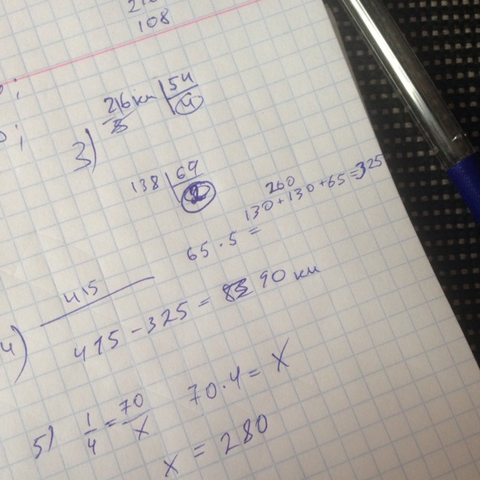 108
3) 216 км | 54
4
138 | 69
2
260
65 · 5 = 130 + 130 + 65 = 325
415
4) 415 - 325 = 90 км
5) 1/4 = 70/x 70 · 4 = x
x = 280